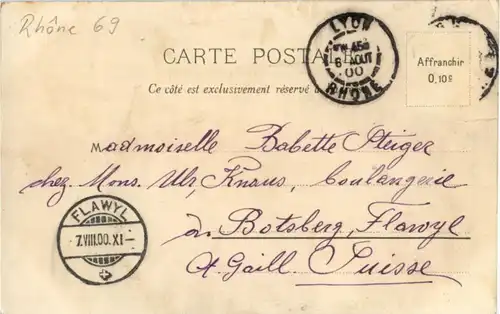 Rhône 69
LYON
6 AOUT
00
RHONE
CARTE POSTALE
Affranchir
0,10 c
Ce côté est exclusivement réservé
Mademoiselle Babette Steiger
chez Mons. Ulr. Knaus, Boulangerie
FLAWYL
7.VIII.00.XI
in Botsberg, Flawyl
St. Gall. Suisse